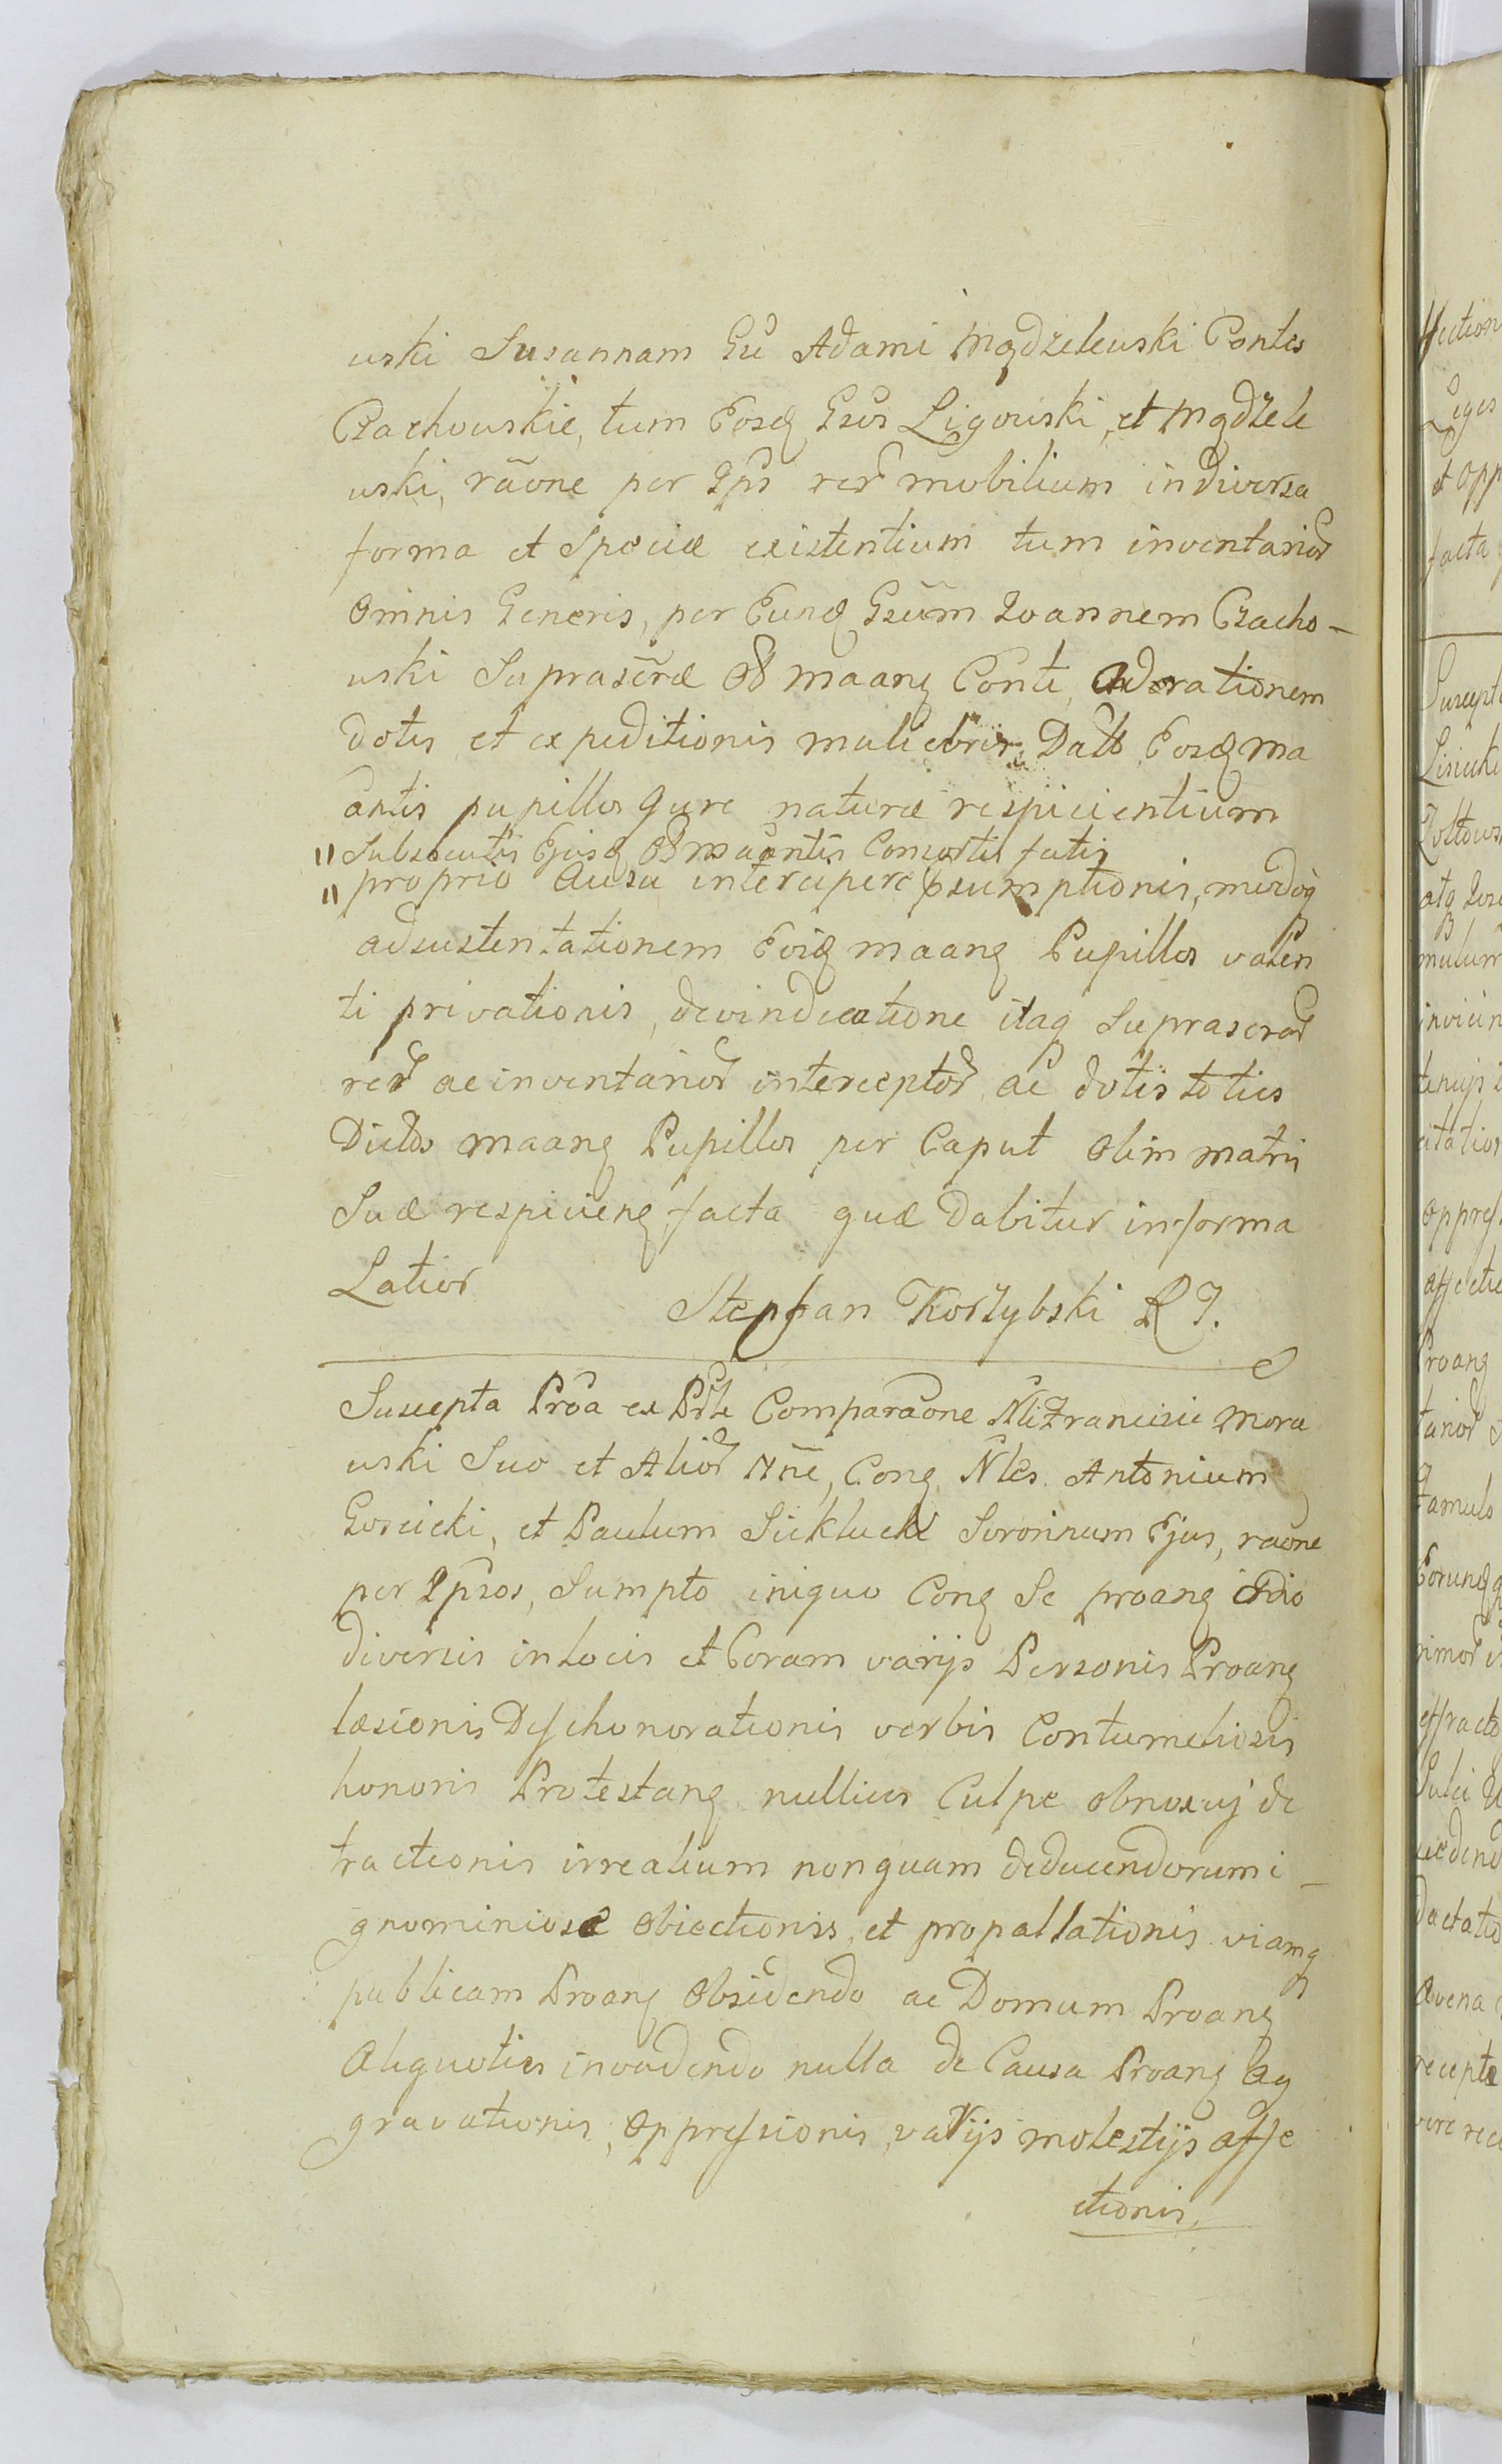 uski Susannam Gū Adami Mądzelewski Contes
Czachouskie, tum Eosq Gsōs Ligouski, et Mądzele
uski, rãone per Ips rerˀ mobilium in diversa
forma et Speciæ existentium tum inventariorˀ
Omnis Generis, per Eunq Gsūm Ioannem Czacho–
uski Suprascr̃æ Ob maang Conti, Ad rationem
dotis et expeditionis muliebris, Datæ Eosq ma
antis pupillos jure naturæ respicientium
" Subsecutis Ejusq Ob maantis Consortis fatis
" proprio Ausu intercipere psumptionis, medoq
ad sustentationem Eosq maang Pupillos valen
ti privationis, devindicatione itaq Suprascrorˀ
rerˀ ac inventariorˀ interceptorˀ, ac dotis toties
Dictos maang Pupillos per Caput Olim matris
Suæ respicieng, facta quæ Dabitur in forma
Latior
Stephan Korzybski R J.
Suscepta Proā ex Prte Comparãone Nli Francisci Mora
uski Suo et Aliorˀ Nñe, Cong Nles Antonium
Goscicki, et Paulum Siklucki Sororinum Ejus, raone
per Ipsos, Sumpto iniquo Cong Se proang Odio
diversis in locis et Coram varijs Personis Proang
læsionis Deshonorationis verbis Contumeliosis
honoris Protestang nullius Culpe obnoxij de
tractionis irrealium nonquam deducendorum i–
gnominiosæ Obiectionis, et propallationis viamq
publicam Proang Obsidendo ac Domum Proang
Aliquoties invadendo nulla de Causa Proang Ag
gravationis, Oppressionis, varijs molestijs affe
ctionis.
Lisicki
facta
famulo
recepta